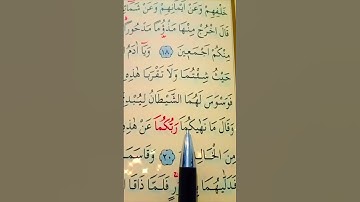 خَلْفِهِمْ وَعَنْ اَيْمَانِهِمْ وَعَنْ
قَالَ اخْرُجْ مِنْهَا مَذْؤُمًا مَدْحُورًا
مِنْكُمْ اَجْمَعِينَ ﴿١٨﴾ وَيَا اٰدَمُ
حَيْثُ شِئْتُمَا وَلَا تَقْرَبَا هٰذِهِ
فَوَسْوَسَ لَهُمَا الشَّيْطَانُ لِيُبْدِيَ
وَقَالَ مَا نَهٰيكُمَا رَبُّكُمَا عَنْ هٰذِهِ
مِنَ ﴿٢٠﴾ وَقَاسَمَ
فَدَلّٰيهُمَا فَلَمَّا ذَاقَا